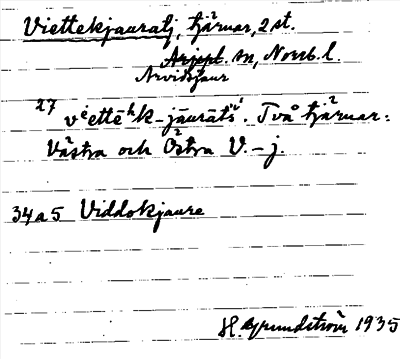 Viettekjauratj, tjärnar, 2 st.
Arjepl. sn, Norrb. l.
Arvidsjaur
27 viettēʰk-jāurātsⁱ. Två tjärnar:
Västra och Östra V.-j.
34a5 Viddokjaure
H. Grundström 1935